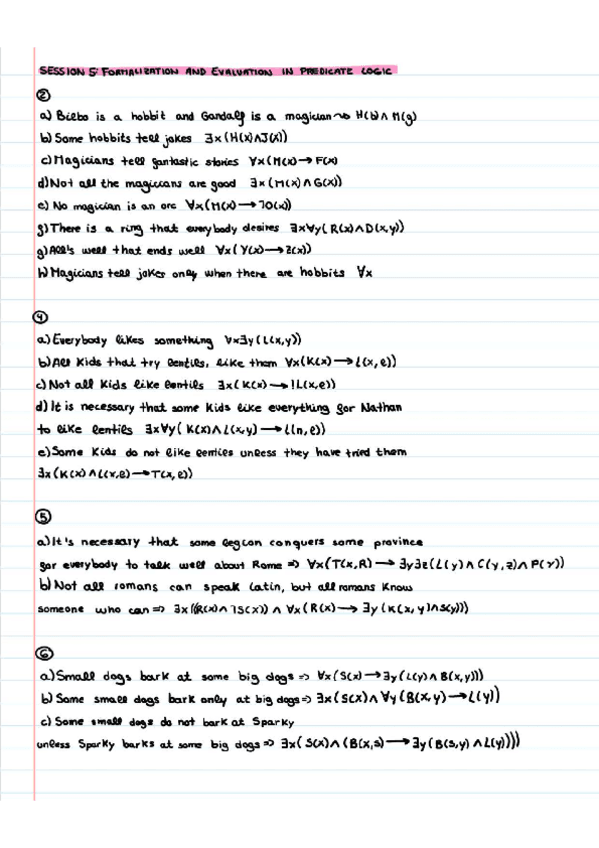 SESSION 5: FORMALIZATION AND EVALUATION IN PREDICATE LOGIC
②
a) Bilbo is a hobbit and Gandalf is a magician ⤳ H(b) ∧ M(g)
b) Some hobbits tell jokes ∃x(H(x)∧J(x))
c) Magicians tell fantastic stories ∀x(M(x) → F(x)
d) Not all the magicians are good ∃x(M(x) ∧ G(x))
e) No magician is an orc ∀x(M(x) → ⅂O(x))
f) There is a ring that everybody desires ∃x∀y(R(x)∧D(x,y))
g) All's well that ends well ∀x(Y(x) → Z(x))
h) Magicians tell jokes only when there are hobbits ∀x
④
a) Everybody likes something ∀x∃y(L(x,y))
b) All kids that try lentils, like them ∀x(K(x) → L(x,e))
c) Not all kids like lentils ∃x(K(x) → ⅂L(x,e))
d) It is necessary that some kids like everything for Nathan
to like lentils ∃x∀y(K(x)∧L(x,y) → L(n,e))
e) Some kids do not like lentils unless they have tried them
∃x(K(x)∧L(x,e) → T(x,e))
⑤
a) It's necessary that some legion conquers some province
for everybody to talk well about Rome => ∀x(T(x,R) → ∃y∃z(L(y)∧C(y,z)∧P(y))
b) Not all romans can speak latin, but all romans know
someone who can => ∃x((R(x)∧⅂S(x)) ∧ ∀x(R(x) → ∃y(K(x,y)∧S(y)))
⑥
a) Small dogs bark at some big dogs => ∀x(S(x) → ∃y(L(y)∧B(x,y)))
b) Some small dogs bark only at big dogs => ∃x(S(x)∧∀y(B(x,y) → L(y))
c) Some small dogs do not bark at Sparky
unless Sparky barks at some big dogs => ∃x(S(x)∧(B(x,s) → ∃y(B(s,y)∧L(y))))